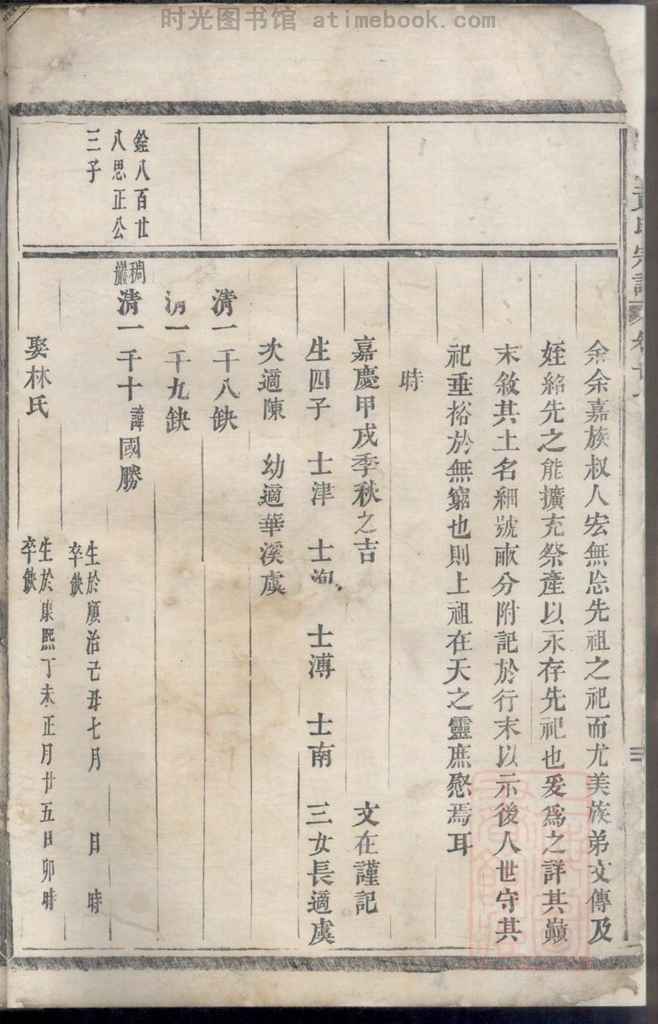 时光图书馆 atimebook.com
黃氏宗譜
余余嘉族叔人宏無忘先祖之祀而尤美族弟文傳及
姪紹先之能擴充祭產以永存先祀也爰為之詳其巔
末敘其土名細號畝分附記於行末以示後人世守其
祀垂裕於無窮也則上祖在天之靈庶慰焉耳
時
嘉慶甲戌季秋之吉 文在謹記
生四子 士津 士洵 士溥 士南 三女長適虞
次適陳 幼適華溪虞
清一千八缺
清一千九缺
銓八百廿
八思正公
三子
清一千十諱國勝
生於順治己丑七月 日 時
卒缺
娶林氏
生於康熙丁未正月廿五日卯時
卒缺